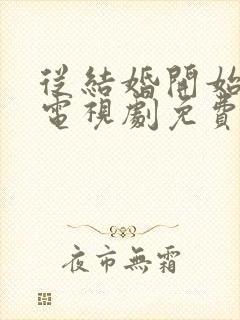 從結婚開始
電視劇免費
夜市無霜